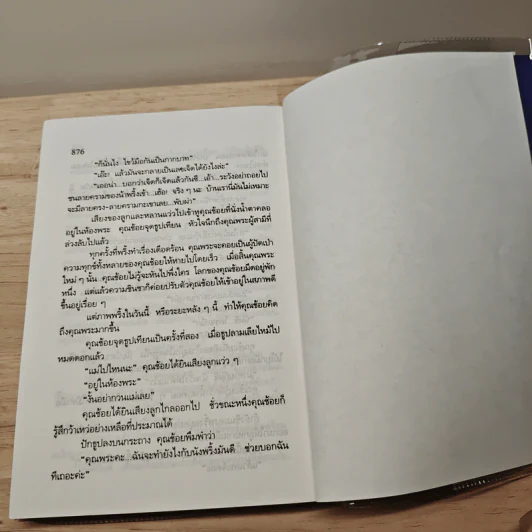 876
"ก็นั่นไง ไขว้มือกันเป็นกากบาท"
"เอ๊ะ! แล้วมันจะกลายเป็นเลขเจ็ดได้ยังไงล่ะ"
"เออน่า...บอกว่าเจ็ดก็เจ็ดแล้วกันซี...เอ้า...ระวังอย่าถอยไป
ชนลายครามของน้าพริ้งเข้า...เฮ้อ! จริง ๆ นะ บ้านเรานี่มันไม่เหมาะ
จะมีลายคราม-ลายครามกะเขาเลย...พับผ่า"
เสียงของลูกและหลานแว่วไปเข้าหูคุณช้อยที่นั่งน้ำตาคลอ
อยู่ในห้องพระ คุณช้อยจุดธูปเทียน หัวใจนึกถึงคุณพระผู้สามีที่
ล่วงลับไปแล้ว
ทุกครั้งที่พริ้งทำเรื่องเดือดร้อน คุณพระจะคอยเป็นผู้ปัดเป่า
ความทุกข์ทั้งหลายของคุณช้อยให้หายไปโดยเร็ว เมื่อสิ้นคุณพระ
ใหม่ ๆ นั้น คุณช้อยไม่รู้จะหันไปพึ่งใคร โลกของคุณช้อยมืดอยู่พัก
หนึ่ง แต่แล้วความชินชาก็ค่อยปรับตัวคุณช้อยให้เข้าอยู่ในสภาพดี
ขึ้นอยู่เรื่อย ๆ
แต่ภาพพริ้งในวันนี้ หรือระยะหลัง ๆ นี้ ทำให้คุณช้อยคิด
ถึงคุณพระมากขึ้น
คุณช้อยจุดธูปเทียนเป็นครั้งที่สอง เมื่อธูปลามเลียไหม้ไป
หมดดอกแล้ว
"แม่ไปไหนนะ" คุณช้อยได้ยินเสียงลูกแว่ว ๆ
"อยู่ในห้องพระ"
"งั้นอย่ากวนแม่เลย"
คุณช้อยได้ยินเสียงลูกไกลออกไป ชั่วขณะหนึ่งคุณช้อยก็
รู้สึกว้าเหว่อย่างเหลือที่ประมาณได้
ปักธูปลงบนกระถาง คุณช้อยพึมพำว่า
"คุณพระคะ...ฉันจะทำยังไงกับนังพริ้งมันดี ช่วยบอกฉัน
ทีเถอะค่ะ"